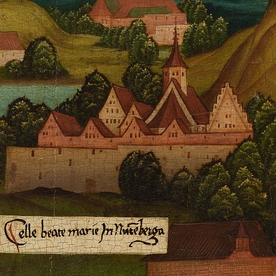 Celle beate marie Jn Nürẽberga